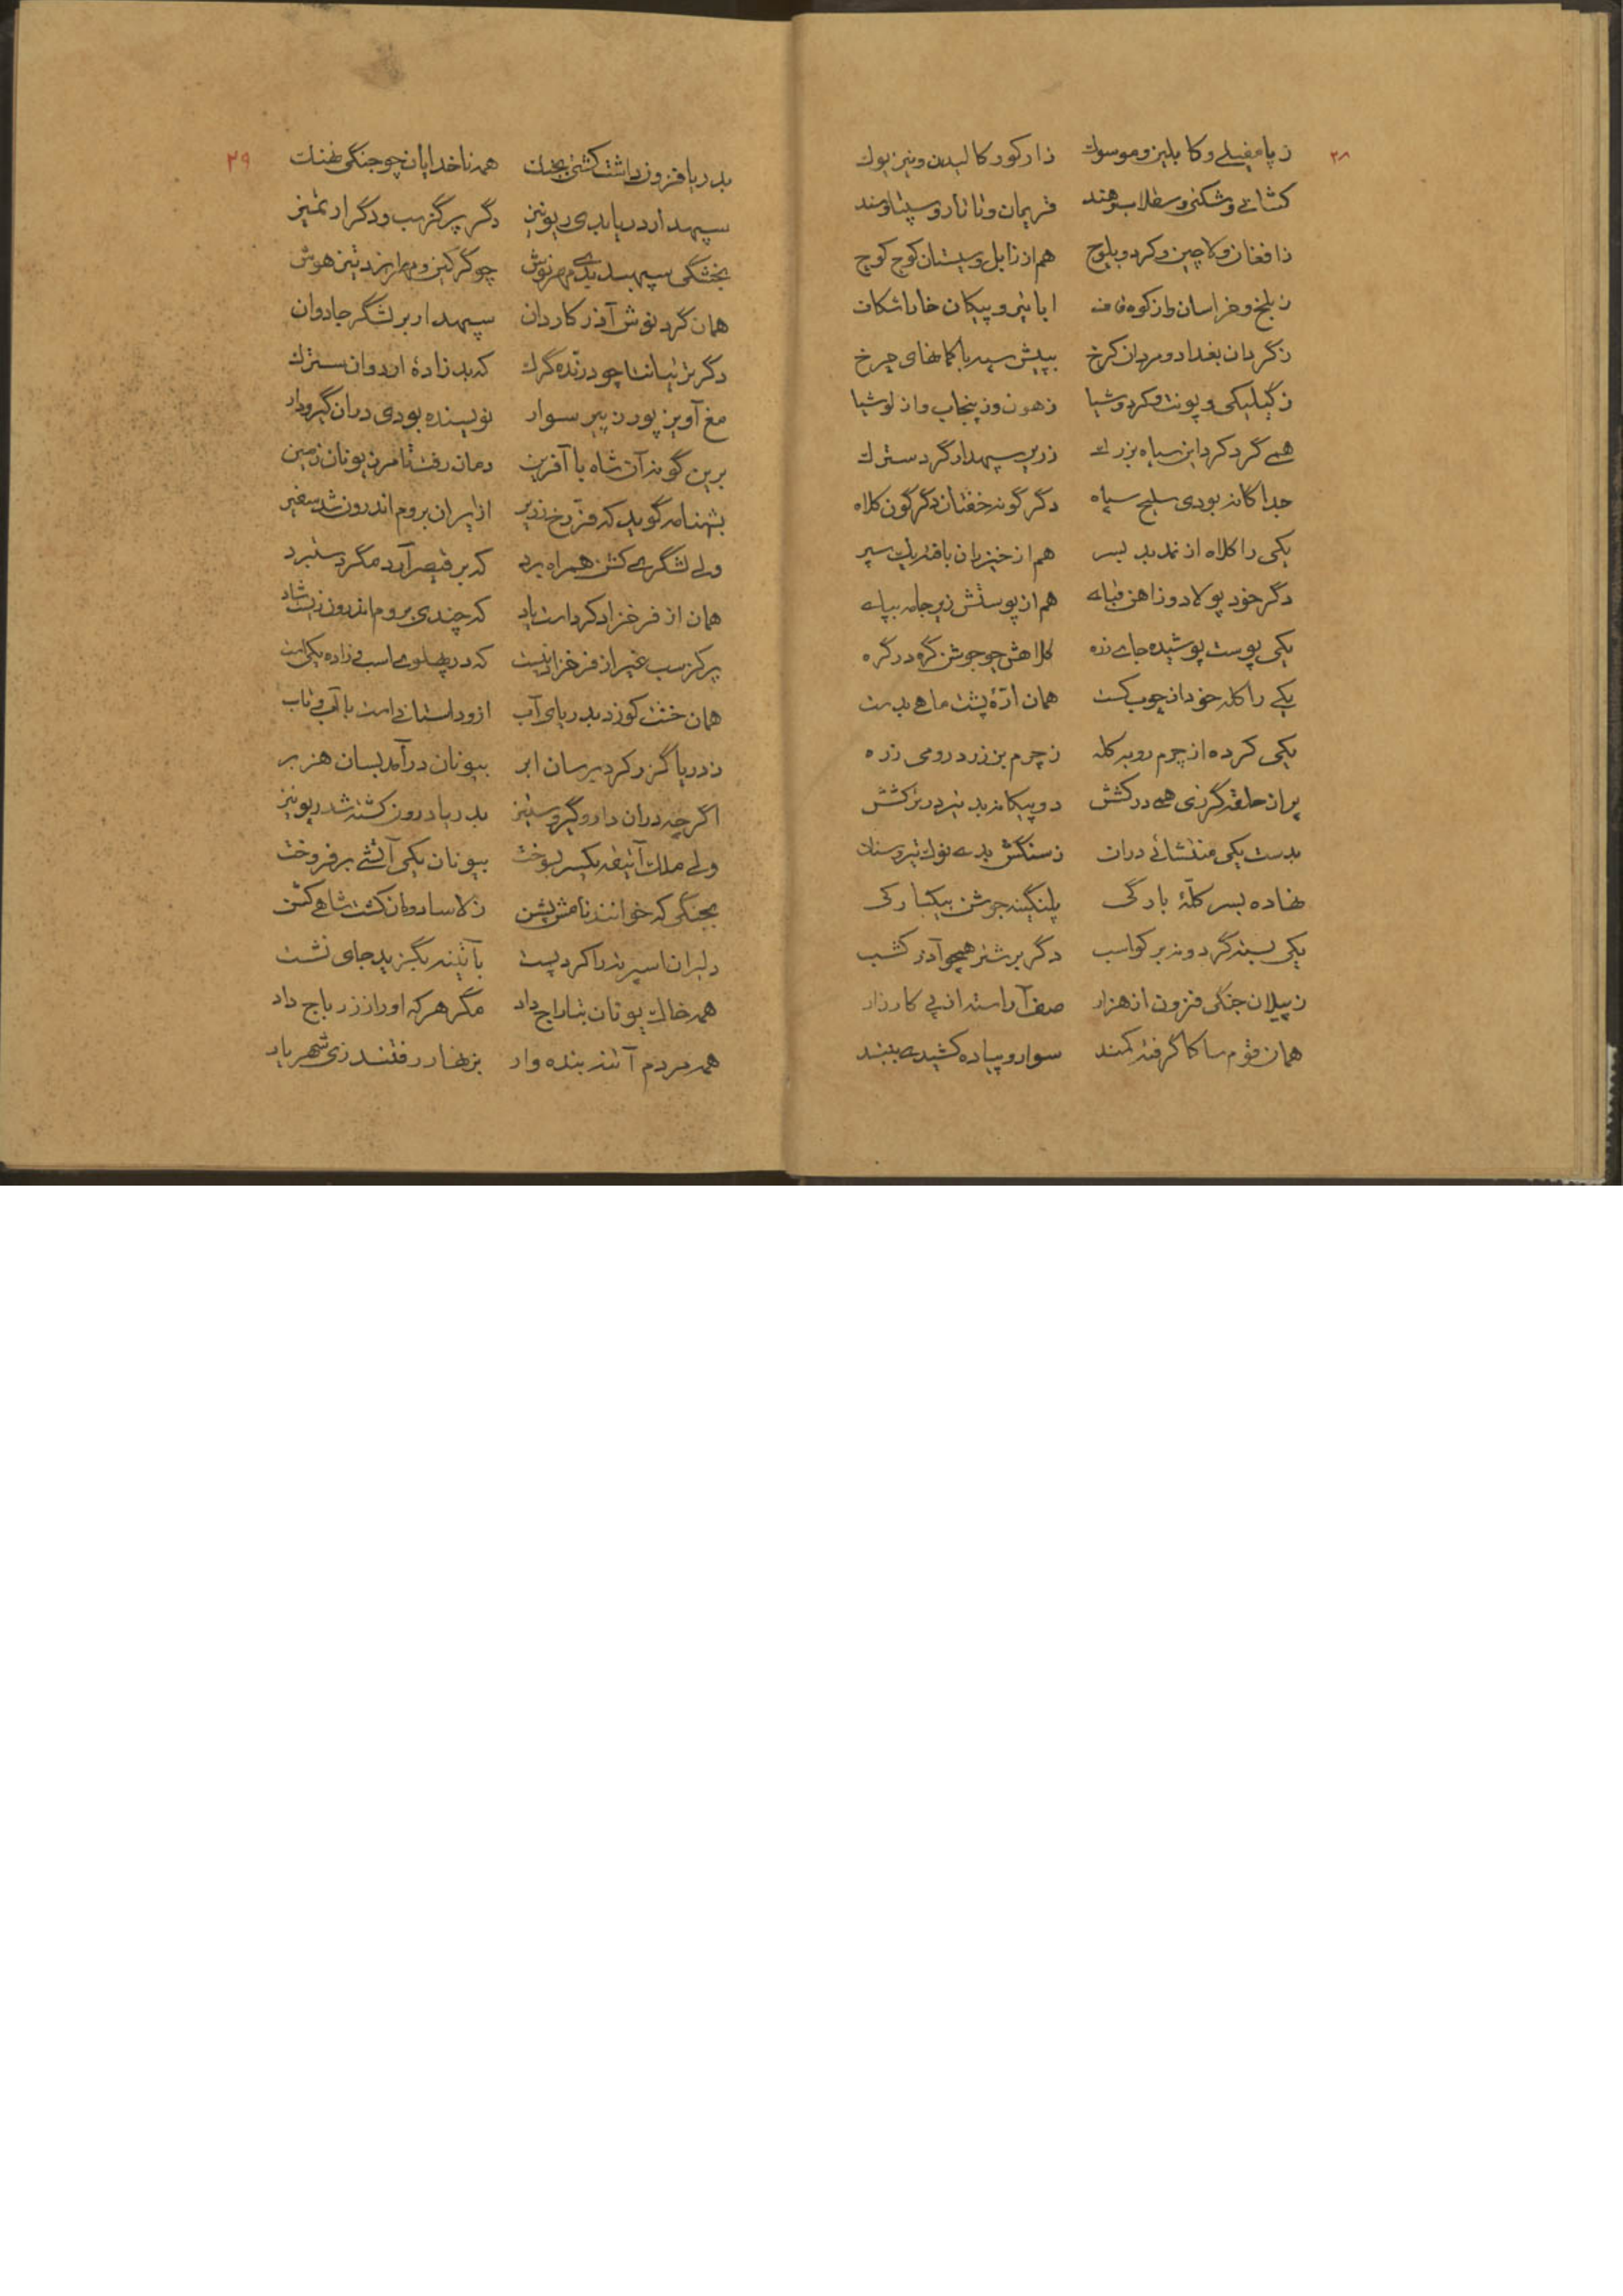 ۲۸
ز پامفیلی و کابلین و موسوک ز ارکور کالیدن و نیزیوک
کشانی و شکنی و سقلاب و هند فریمان و تاتار و سپتاومند
ز افغان و لاچین و کرد و بلوچ هم از زابل و سیستان کوچ کوچ
ز بلخ و خراسان و از کوه قاف ابا نیزه و پیکان خارا شکاف
ز گردان بغداد و مردان کرخ به پیش سپه با کمانهای چرخ
ز کیلیکی و پونت و کردوشیا ز هون و ز پنجاب و از لوشیا
همی گرد کرد این سپاه بزرک زریر سپهدار گرد سترک
جداگانه بودی سلیح سپاه دگر گونه خفتان دگر گون کلاه
یکی را کلاه از نمد بد بسر هم از خیزران بافته یک سپر
دگر خود پولاد وز آهن قبای هم از پوستش زیر جامه بپای
یکی پوست پوشیده جای زره کلاهش چو جوشن گره در گره
یکی را کله خود از چوب کست همان ارّهٔ پشت ماهی بدست
یکی کرده از چرم روبه کله ز چرم بز زرد رومی زره
پر از حلقه گرزی همی درکشش دو پیکانه بد نیزه در ترکشش
بدست یکی منتشائی دران ز سنگش بدی نوک تیر و سنان
نهاده بسر کلّهٔ بارگی پلنگینه جوشن بیکبارگی
یکی بسته گردونه بر کواسب دگر بر شتر همچو آذر کشسب
ز پیلان جنگی فزون از هزار صف آراسته از پی کارزار
همان قوم ساکا گرفته کمند سوار و پیاده کشیدی ببند
۲۹
بدریا فزون داشت کشتی بجنک همه ناخدایان چو جنگی نهنک
سپهدار دریا بدی ریونیز دگر پرگزسب و دگر ارتمیز
بخشگی سپهبد بدی مهرنوش چو گرگین و مهرابزد تیز هوش
همان گرد نوش آذر کاردان سپهدار بر لشگر جادوان
دگر تریتیانتا چو درنده گرک که بد زادهٔ اردوان سترک
مغ آوین پور زریر سوار نویسنده بودی دران گیرودار
برین گونه آن شاه با آفرین دمان رفت تا مرز یونان زمین
بشهنامه گوید که فرّخ زریر از ایران بروم اندرون شد سفیر
ولی لشگری کشن همراه برد که بر قیصر آرد مگر دستبرد
همان از فرخزاد کرداست یاد که چندی بروم اندرون زیست شاد
پرکزسب غیر از فرخزاد نیست که در پهلوی اسب و زاده یکی است
همان خشت کو زد بدریای آب ازو داستانی است با آب و تاب
ز دریا گزر کرد برسان ابر بیونان درآمد بسان هزبر
اگر چه دران دارو گیر و ستیز بدریا درون کشته شد ریونیز
ولی ملک آتیقه یکسر بسوخت بیونان یکی آتشی برفروخت
بجنگی که خوانند نامش پشن ز لاسادمان کشت شاهی کشن
دلیران اسپرته را کرد پست بآتینه بگزید جای نشست
همه خاک یونان بتاراج داد مگر هر که او را ز زر باج داد
همه مردم آتنه بنده وار بزنهار رفتند زی شهریار